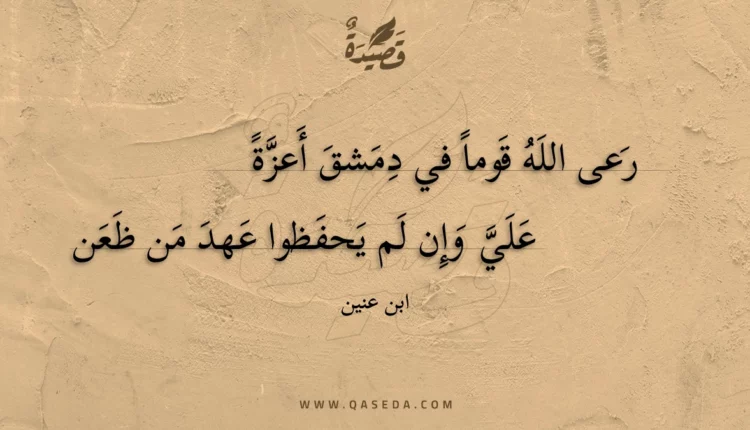 قَصِيدَةٌ
رَعى اللَهُ قَوماً في دِمَشقَ أَعزَّةً
عَلَيَّ وَإِن لَم يَحفَظوا عَهدَ مَن ظَعَن
ابن عنين
WWW.QASEDA.COM